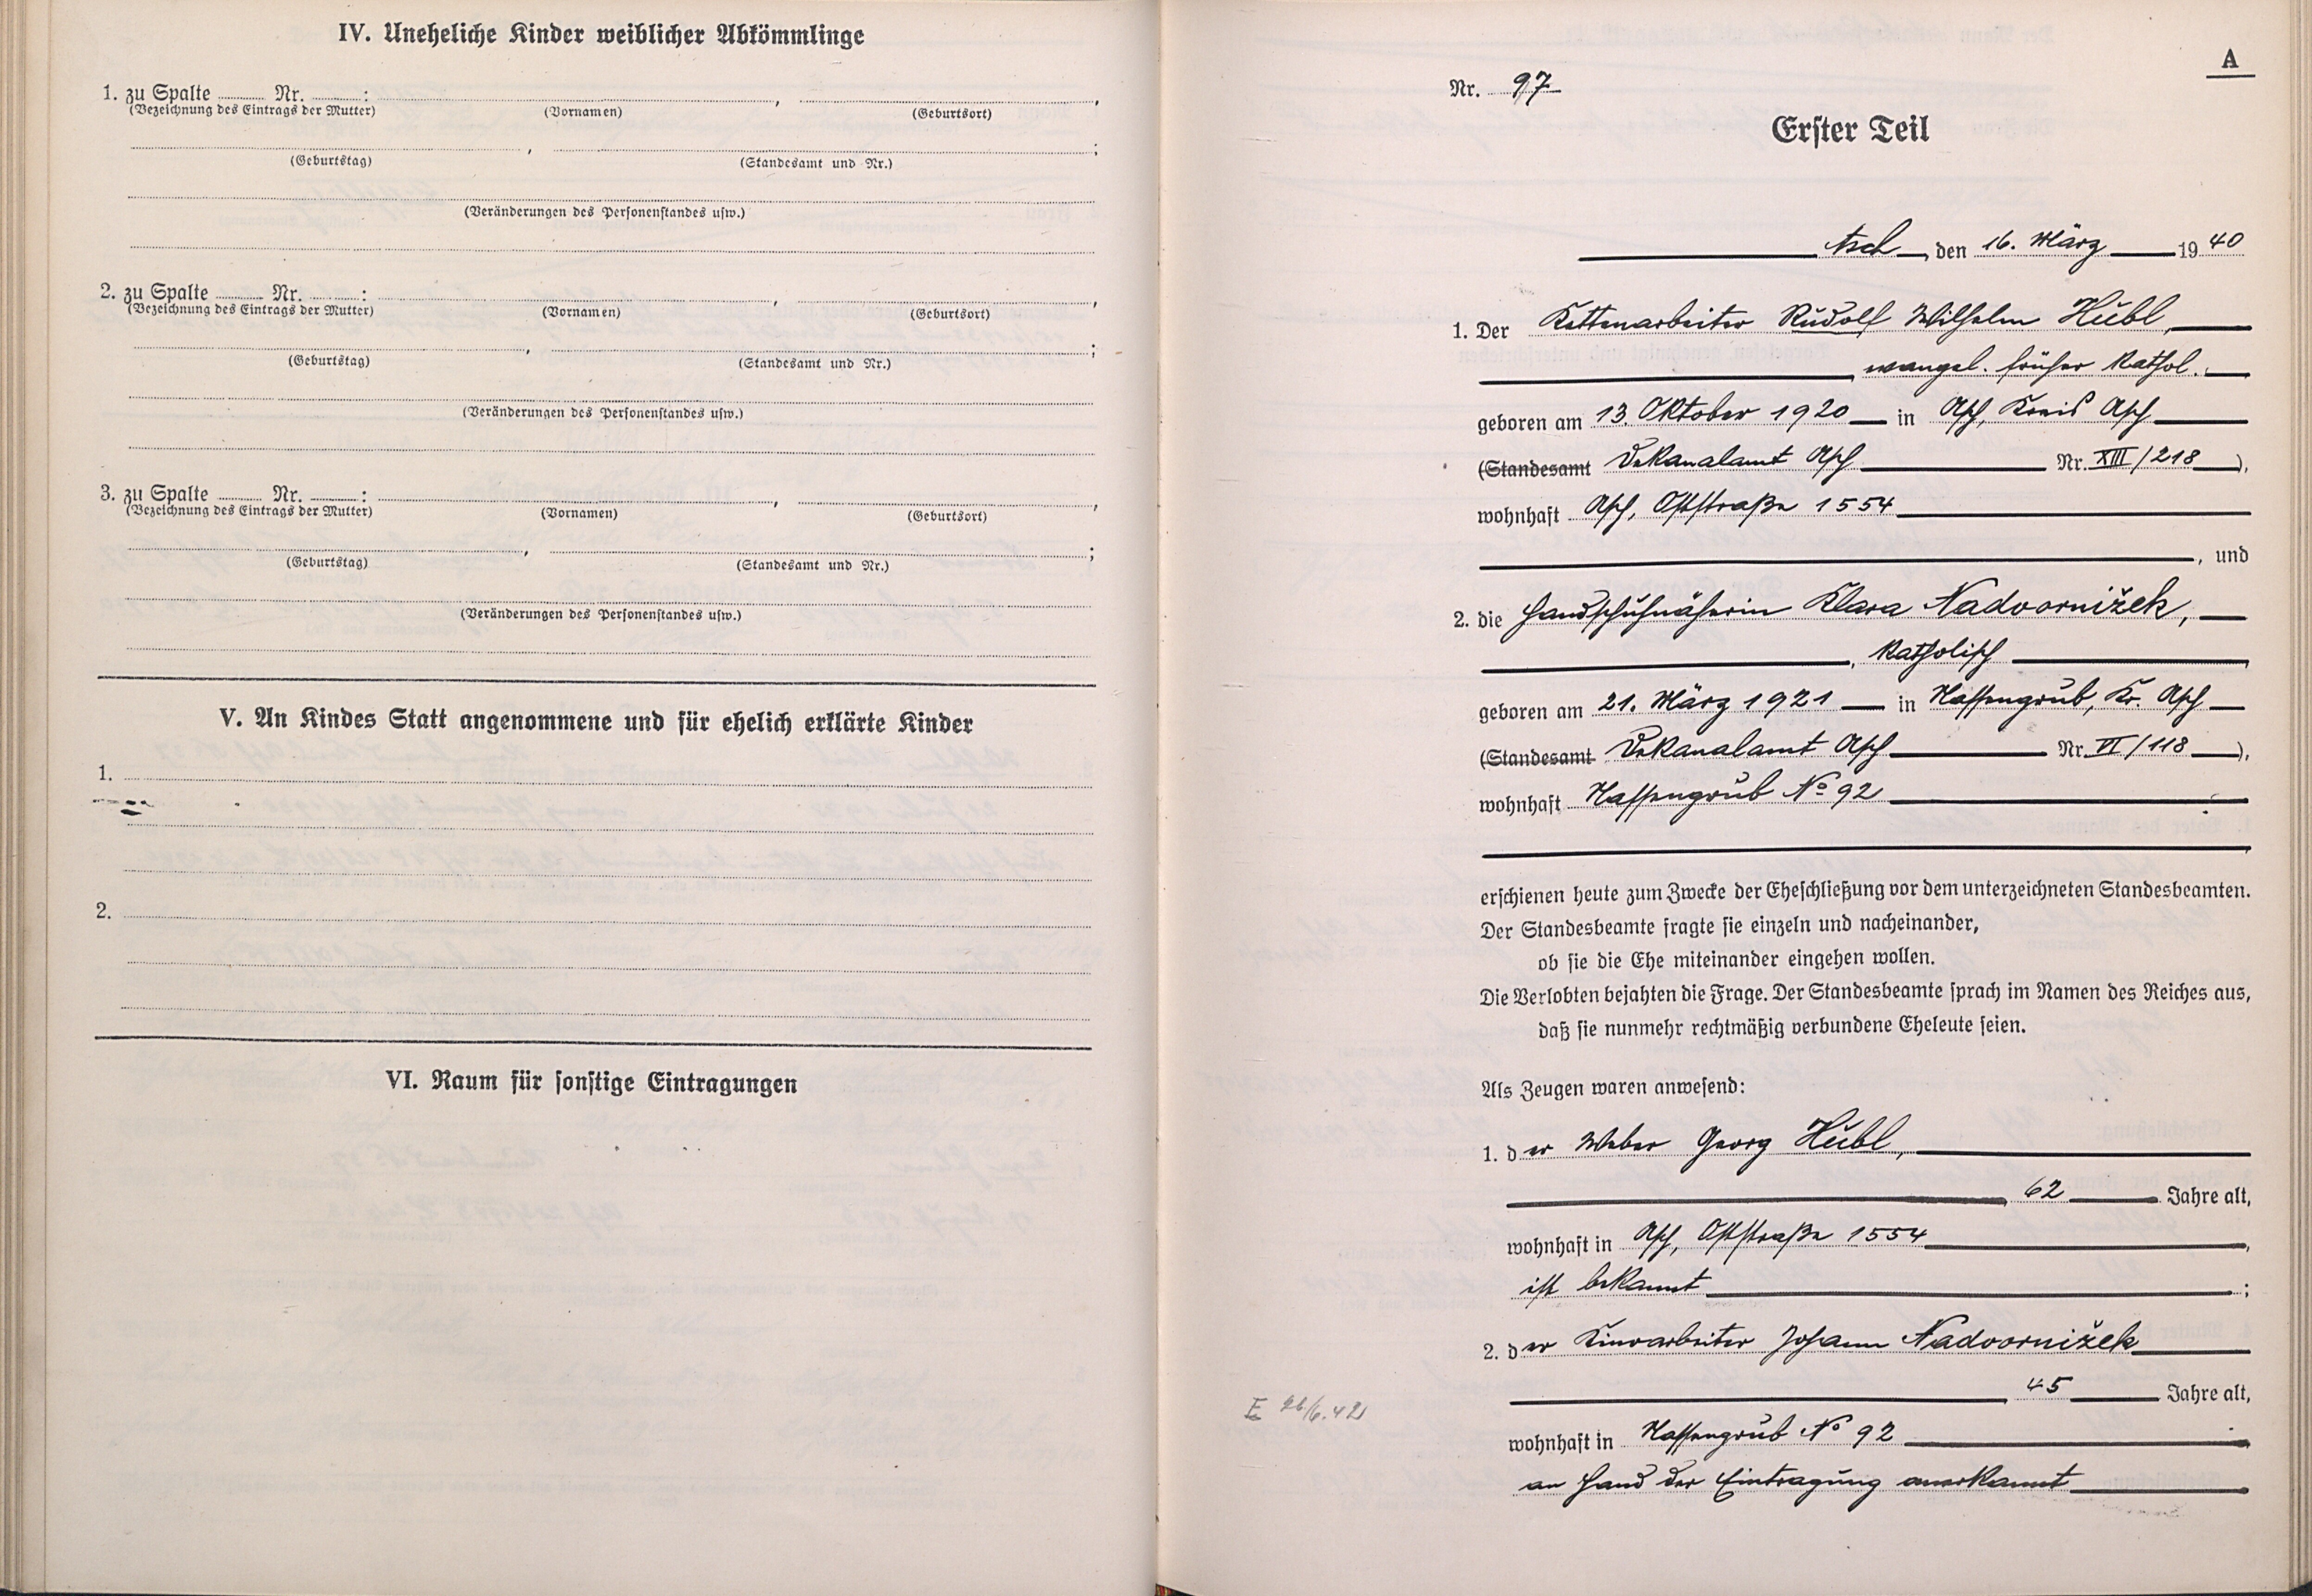 IV. Uneheliche Kinder weiblicher Abkömmlinge
1. zu Spalte ........ Nr. ........ :
(Bezeichnung des Eintrags der Mutter) (Vornamen) (Geburtsort)
(Geburtstag) (Standesamt und Nr.)
(Veränderungen des Personenstandes usw.)
2. zu Spalte ........ Nr. ........ :
(Bezeichnung des Eintrags der Mutter) (Vornamen) (Geburtsort)
(Geburtstag) (Standesamt und Nr.)
(Veränderungen des Personenstandes usw.)
3. zu Spalte ........ Nr. ........ :
(Bezeichnung des Eintrags der Mutter) (Vornamen) (Geburtsort)
(Geburtstag) (Standesamt und Nr.)
(Veränderungen des Personenstandes usw.)
V. An Kindes Statt angenommene und für ehelich erklärte Kinder
1.
2.
VI. Raum für sonstige Eintragungen
A
Nr. 97
Erster Teil
Asch, den 16. März 1940
1. Der Kettenarbeiter Rudolf Wilhelm Hübl,
, evangel. früher kathol.
geboren am 13. Oktober 1920 in Asch, Kreis Asch
(Standesamt Dekanalamt Asch Nr. XIII/218),
wohnhaft Asch, Oststraße 1554
, und
2. die Handschuhnäherin Klara Nadvornižek,
, katholisch
geboren am 21. März 1921 in Nassengrub, Kr. Asch
(Standesamt Dekanalamt Asch Nr. VI/118),
wohnhaft Nassengrub No 92
erschienen heute zum Zwecke der Eheschließung vor dem unterzeichneten Standesbeamten.
Der Standesbeamte fragte sie einzeln und nacheinander,
ob sie die Ehe miteinander eingehen wollen.
Die Verlobten bejahten die Frage. Der Standesbeamte sprach im Namen des Reiches aus,
daß sie nunmehr rechtmäßig verbundene Eheleute seien.
Als Zeugen waren anwesend:
1. der Weber Georg Hübl,
62 Jahre alt,
wohnhaft in Asch, Oststraße 1554,
ist bekannt ;
2. der Johann Nadvornižek
45 Jahre alt,
E 26/6.42
wohnhaft in Nassengrub No 92
an Hand der Eintragung anerkannt